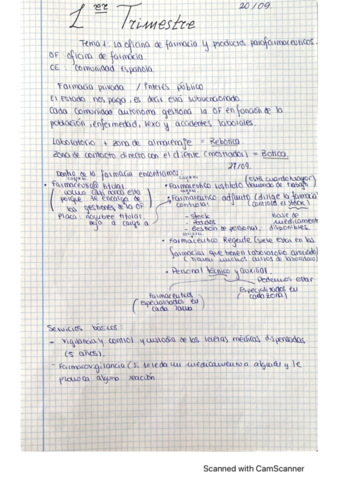 20/09
1er Trimestre
Tema 1: La oficina de farmacia y productos parafarmacéuticos.
OF oficina de farmacia
CE comunidad Española
Farmacia privada / interés público
El estado nos paga, es decir está subvencionado
Cada comunidad autónoma gestiona la OF en función de la
población, enfermedad, sexo y accidentes laborales
Laboratorio + zona de almacenaje = Rebotica
zona de contacto directo con el cliente (mostrador) = Botica
27/09
Dentro de la farmacia encontramos
Farmacéutico titular
porque se encarga de
las gestiones de la OF
Placa nombre titular
deja a cargo a
Farmacéutico sustituto
Farmacéutico adjunto (dirige la farmacia
controla el stock)
- stock
- pedidos
- Gestión de personal
Base de
medicamentos
disponibles
Farmacéutico Regente (suele estar en las
farmacias que tienen laboratorio
Personal técnico y auxiliar
Podemos estar
Especializados en
cada zona
Farmacéuticos
especializados en
cada
Servicios básicos
- Vigilancia y control y custodia de las recetas médicas dispensadas
(5 años).
- Farmacovigilancia (si se le da un medicamento a alguien y le
provoca alguna reacción
Scanned with CamScanner